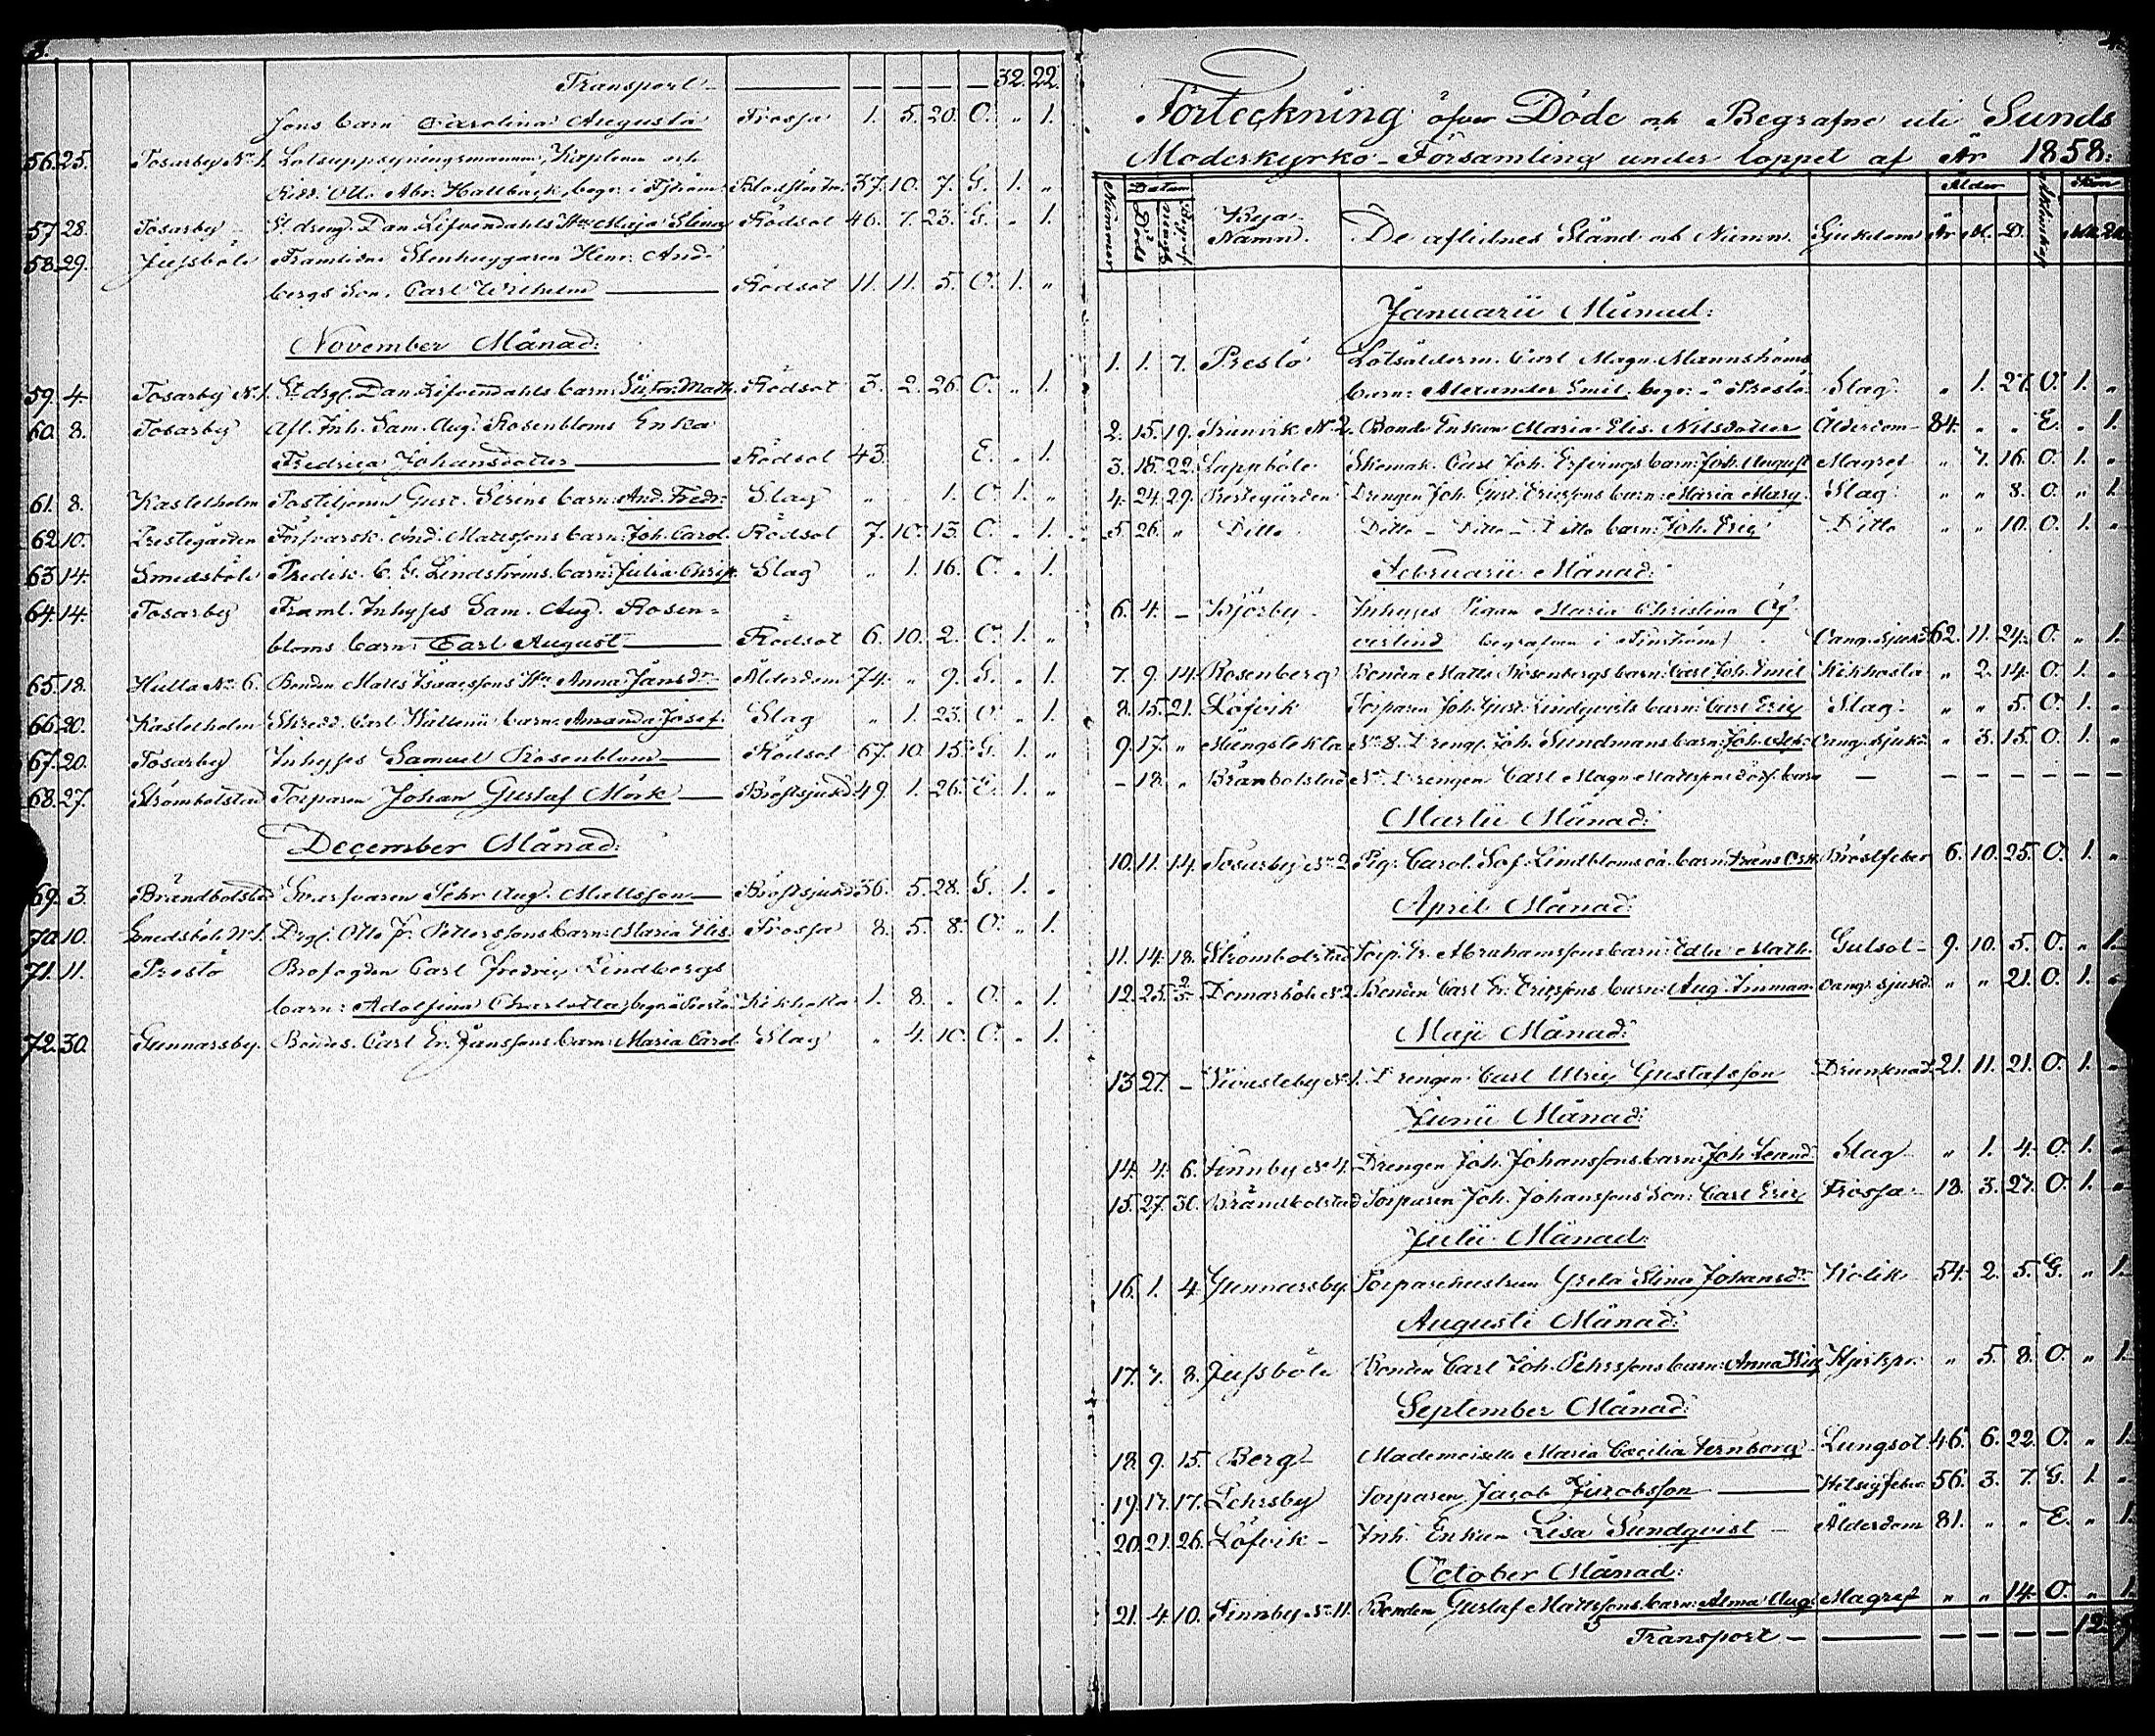 3.
Transport — — — — — 32. 22.
sons barn Carolina Augusta Frossa 1. 5. 20. O. „ 1.
56. 25. Tosarby No 1. Lotsuppsyningsmannen, Kaptenen och
Ridd. Otto Abr. Hallbäck, begr. i Finström 37. 10. 7. G. 1. „
57. 28. Tosarby St. dreng. Dan. Lifvendahls Hu. Maja Stina Rödsot 46. 7. 23. G. „ 1.
58. 29. Jussböle Framlidne Stenhuggaren Henr. And-
bergs Son, Carl Wilhelm — Rödsot 11. 11. 5. O. 1. „
November Månad:
59. 4. Tosarby No 1. St. drg. Dan. Lifvendahls barn: Math. Rödsot 3. 2. 26. O. „ 1.
60. 8. Tosarby Afl. Inh. Sam. Aug. Rosenbloms Enka
Fredrica Johansdotter — Rödsot 43. E. „ 1.
61. 8. Kastelholm Postiljonen Gust. Sirens barn: And. Fredr. Slag „ 1. O. 1. „
62. 10. Prestegården Försvarsk. And. Mattssons barn: Joh. Carol. Rödsot 7. 10. 13. O. „ 1.
63. 14. Smedsböle Predik. C. G. Lindströms barn: Julia Christ. Slag „ 1. 16. O. „ 1.
64. 14. Tosarby Framl. Inhyses Sam. Aug. Rosen-
bloms barn: Carl August — Rödsot 6. 10. 2. O. 1. „
65. 18. Hulta No 6. Bonden Matts Isaacssons Hu. Anna Jansdr Ålderdom 74. „ 9. G. „ 1.
66. 20. Kastelholm Skredd. Carl Wallenii barn: Amanda Josef. Slag „ 1. 23. O. „ 1.
67. 20. Tosarby Inhyses Samuel Rosenblom — Rödsot 67. 10. 15. G. 1. „
68. 27. Strömbolstad Torparen Johan Gustaf Mörk — Bröstsjukd. 49. 1. 26. E. 1. „
December Månad:
69. 3. Brändbolstad Svarfvaren Pehr Aug. Mattsson — Bröstsjukd. 36. 5. 28. G. 1. „
70. 10. Smedsböle No 1. Drg. Otto Pettersssons barn: Maria Elis. Frossa 8. 5. 8. O. „ 1.
71. 11. Prestö Brofogden Carl Fredric Lindbergs
barn: Adolfina Charlotta, begr. å Prestö Kikhosta 1. 8. „ O. „ 1.
72. 30. Gunnarsby Bondes. Carl Er. Janssons barn: Maria Carol. Slag „ 4. 10. O. „ 1.
4.
Förteckning öfver Döde och Begrafne uti Sunds
Moderkyrko-Församling under loppet af År 1858:
Nummer Datum Döds Begrafnings Bya Namn. De aflidnes Stånd och Namn. Sjukdom Ålder År M. D. Kön M.k. Q.k.
Januarii Månad:
1. 1. 7. Prestö Lotsålderm. Carl Magn. Mannströms
barn: Alexander Emil, begr. å Prestö. Slag. „ 1. 27. O. 1. „
2. 15. 19. No 2. Bonde Enkan Maria Elis. Nilsdotter Ålderdom 84. „ „ E. „ 1.
3. 18. 22. Lappböle Skomak. Carl Joh. barn: Joh. August Magref „ 7. 16. O. 1. „
4. 24. 29. Prestegården Drengen Joh. Gust. Ericssons barn: Maria Marg. Slag „ „ 8. O. „ 1.
5. 26. „ Ditto Ditto — Ditto — Ditto barn: Joh. Eric Ditto „ „ 10. O. 1. „
Februarii Månad:
6. 4. — Björby Inhyses Pigan Maria Christina Öf-
verlind begrafven i Finström) Oang. sjukd. 62. 11. 24. O. „ 1.
7. 9. 14. Rosenberg Bonden Matts Rosenbergs barn: Carl Joh. Emil Kikhosta „ 2. 14. O. 1. „
8. 15. 21. Löfvik Torparen Joh. Gust. Lindqvists barn: Carl Eric Slag. „ „ 5. O. 1. „
9. 17. „ Mångstekta No 8. Drengen Joh. Sundmans barn: Joh. Alex. Oang. sjukd. „ 3. 15. O. 1. „
— 18. „ Brändbolstad No Drengen Carl Magn. Mattssons dödf. barn — — — — — — —
Martii Månad:
10. 11. 14. Tosarby No 2 Pig. Carol. Sof. Lindbloms oä. barn: Frans Osk. Bröstfeber 6. 10. 25. O. 1. „
April Månad:
11. 14. 18. Strömbolstad Torp. Er. Abrahamssons barn: Edla Math. Gulsot 9. 10. 5. O. „ 1.
12. 25. 2/5. Domarböle No 2. Bonden Carl Er. Ericssons barn: Aug. Imman. Oang. sjukd. „ „ 21. O. 1. „
Maji Månad:
13. 27. — No 1. Drengen Carl Ulric Gustafsson Drunknad 21. 11. 21. O. 1. „
Junii Månad:
14. 4. 6. Finnby No 4. Drengen Joh. Johanssons barn: Joh. Leand. Slag „ 1. 4. O. 1. „
15. 27. 30. Brändbolstad Torparen Joh. Johanssons Son: Carl Eric Frossa 18. 3. 27. O. 1. „
Julii Månad:
16. 1. 4. Gunnarsby. Torparehustrun Greta Stina Johansdr Kolik 54. 2. 5. G. „ 1.
Augusti Månad:
17. 7. 8. Jussböle Bonden Carl Joh. Pehrssons barn: Anna „ 5. 8. O. „ 1.
September Månad:
18. 9. 15. Berg Mademoiselle Maria Cæcilia Fernborg Lungsot 46. 6. 22. O. „ 1.
19. 17. 17. Lehrsby Torparen Jacob Jacobsson — Hetsigfeber 56. 3. 7. G. 1. „
20. 21. 26. Löfvik — Inh. Enkan Lisa Sundqvist — Ålderdom 81. „ „ E. „ 1.
October Månad:
21. 4. 10. Finnby No 11. Bonden Gustaf Mattssons barn: Alma Aug. Magref „ „ 14. O. „ 1.
Transport — — — — — — 12. 9.